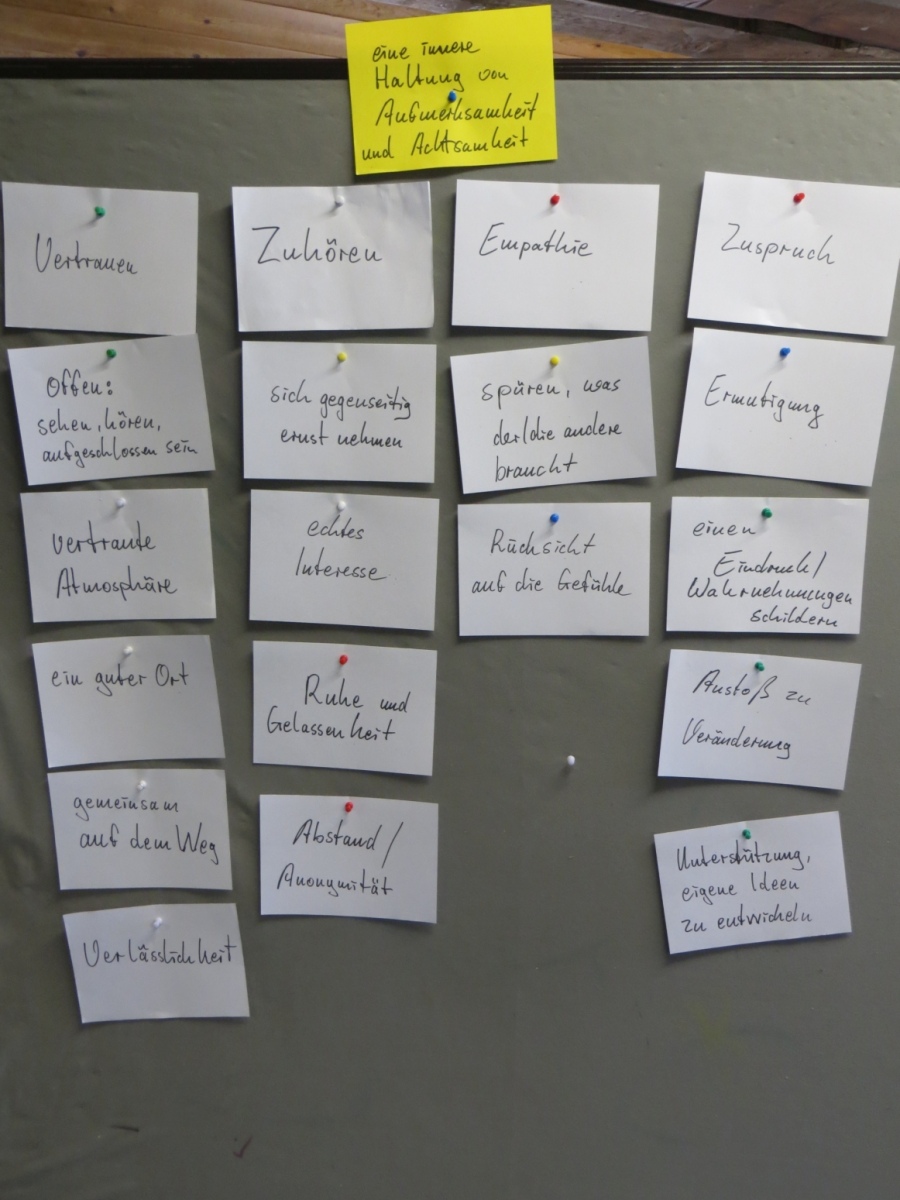 eine innere
Haltung von
Aufmerksamkeit
und Achtsamkeit
Vertrauen
Offen:
sehen, hören,
aufgeschlossen sein
vertraute
Atmosphäre
ein guter Ort
gemeinsam
auf dem Weg
Verlässlichkeit
Zuhören
sich gegenseitig
ernst nehmen
echtes
Interesse
Ruhe und
Gelassenheit
Abstand/
Anonymität
Empathie
spüren, was
der/die andere
braucht
Rücksicht
auf die Gefühle
Zuspruch
Ermutigung
einen
Eindruck/
Wahrnehmungen
schildern
Anstoß zu
Veränderung
Unterstützung,
eigene Ideen
zu entwickeln